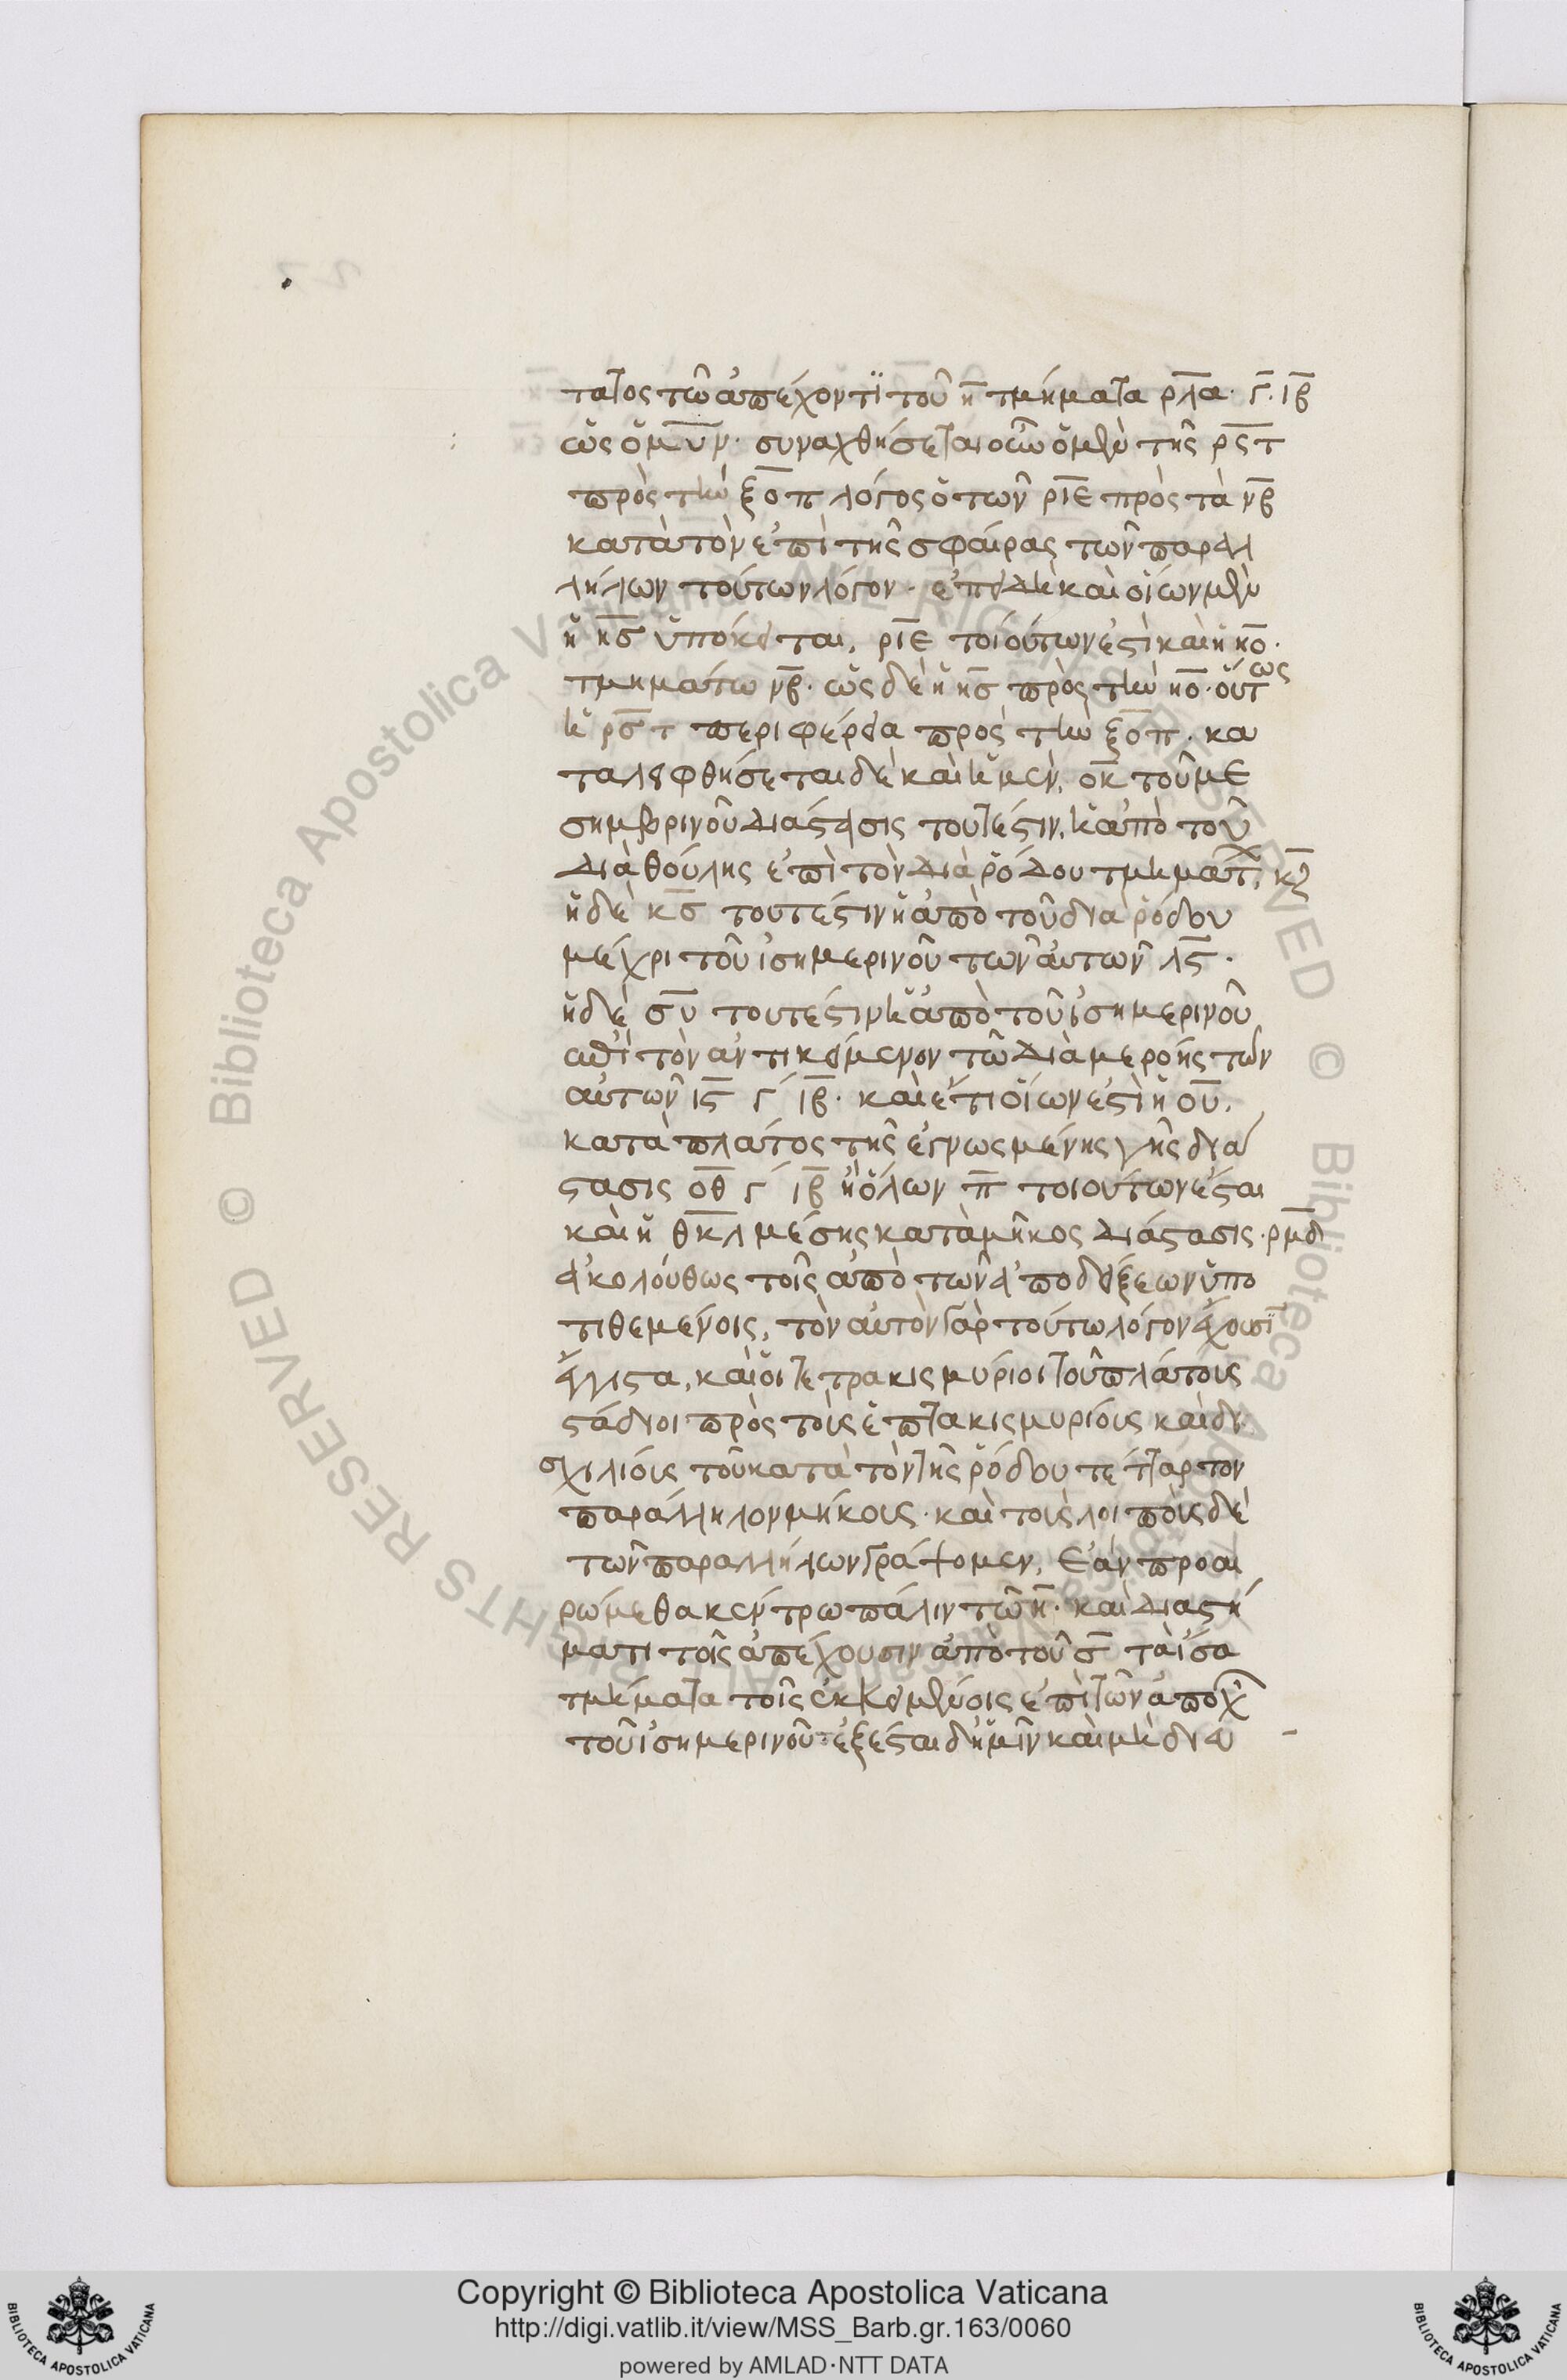 ταTος τῶ ἀπέχοντϊ τοῦ η̅ τμήματα ρ̅λ̅α̅· γ̅. ι̅β̅
ὡς ὁ μ̅υ̅ν̅· συναχθήσεται οὖν ὁ μὲν τῆς ρ̅ς̅τ̅
πρὸς τὴν ξ̅ο̅π̅ λόγος ὁ τῶν ρ̅ι̅ε̅ πρὸς τὰ ν̅β̅
κατὰ τὸν ἐπὶ τῆς σφαίρας τῶν παραλ
λήλων τούτων λόγον· ἐπειδὴ καὶ οἵων μὲν
ἡ η̅σ̅ ὑπόκειται, ρ̅ι̅ε̅ τοιούτων ἐστὶ καὶ ἡ η̅ο̅·
τμημάτω ν̅β̅· ὡς δὲ ἡ η̅σ̅ πρὸς τὴν η̅ο̅· οὕτως
ἡ ρ̅σ̅τ̅ περιφέρεια πρὸς τὴν ξ̅ο̅π̅· κα
ταλειφθήσεται δὲ καὶ ἡ μὲν, ο̅κ̅ τοῦ με
σημβρινοῦ διάστασις τουτέστιν, ἡ ἀπὸ τοῦ
διὰ θούλης ἐπὶ τὸν διὰ ῥόδου τμηματ, κ̅ζ̅
ἡ δὲ κ̅σ̅ τουτέστιν ἡ ἀπὸ τοῦ δια ῥόδου
μέχρι τοῦ ἰσημερινοῦ τῶν αὐτῶν λ̅ς̅·
ἡ δὲ σ̅υ̅ τουτέστιν ἡ ἀπὸ τοῦ ἰσημερινοῦ
ἐπὶ τὸν ἀντικείμενον τῶ διὰ μερόης τῶν
αὐτῶν ι̅ς̅ γ´ ι̅β̅· καὶ ἔτι οἵων ἐστὶ ἡ ο̅υ̅.
κατὰ πλάτος τῆς ἐγνωσμένης γῆς διά
στασις ο̅θ̅ γ´ ι̅β̅ ἢ ὅλων π̅ τοιούτων ἔσται
καὶ ἡ θ̅κ̅λ̅ μέσης κατὰ μῆκος διάστασις· ρ̅μ̅δ̅
ἀκολούθως τοῖς ἀπὸ τῶν ἀποδείξεων ὑπο
τιθεμένοις, τὸν αὐτὸν γὰρ τούτω λόγον ἔχουσϊ
ἄλιστα, καὶ οἱ τετρακισμύριοι τοῦ πλάτους
στάδιοι πρὸς τοὺς ἑπτακισμυρίους καὶ δι
σχιλίους τοῦ κατὰ τὸν τῆς ῥόδου τέταρτον
παράλληλον μήκους· καὶ τοὺς λοιποὺς δὲ
τῶν παραλλήλων γράψομεν, ἐὰν προαι
ρώμεθα κέντρω πάλιν τῶ η̅· καὶ διαστή
ματι τοῖς ἀπέχουσιν ἀπὸ τοῦ σ̅ τὰ ἴσα
τμήματα τοῖς ἐκκειμένοις ἐπὶ τῶν ἀποχ
τοῦ ἰσημερινοῦ: ἐξέσται δ' ἡμῖν καὶ μὴ δι ευ
Copyright © Biblioteca Apostolica Vaticana
http://digi.vatlib.it/view/MSS_Barb.gr.163/0060
powered by AMLAD·NTT DATA